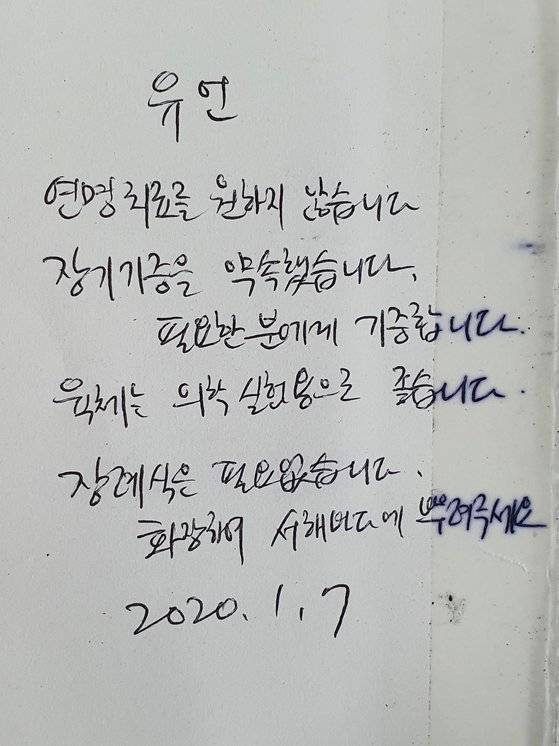 유언
연명 치료를 원하지 않습니다
장기기증을 약속했습니다.
필요한 분에게 기증합니다.
육체는 의학 실험용으로 좋습니다.
장례식은 필요없습니다.
화장하여 서해바다에 뿌려주세요
2020. 1. 7